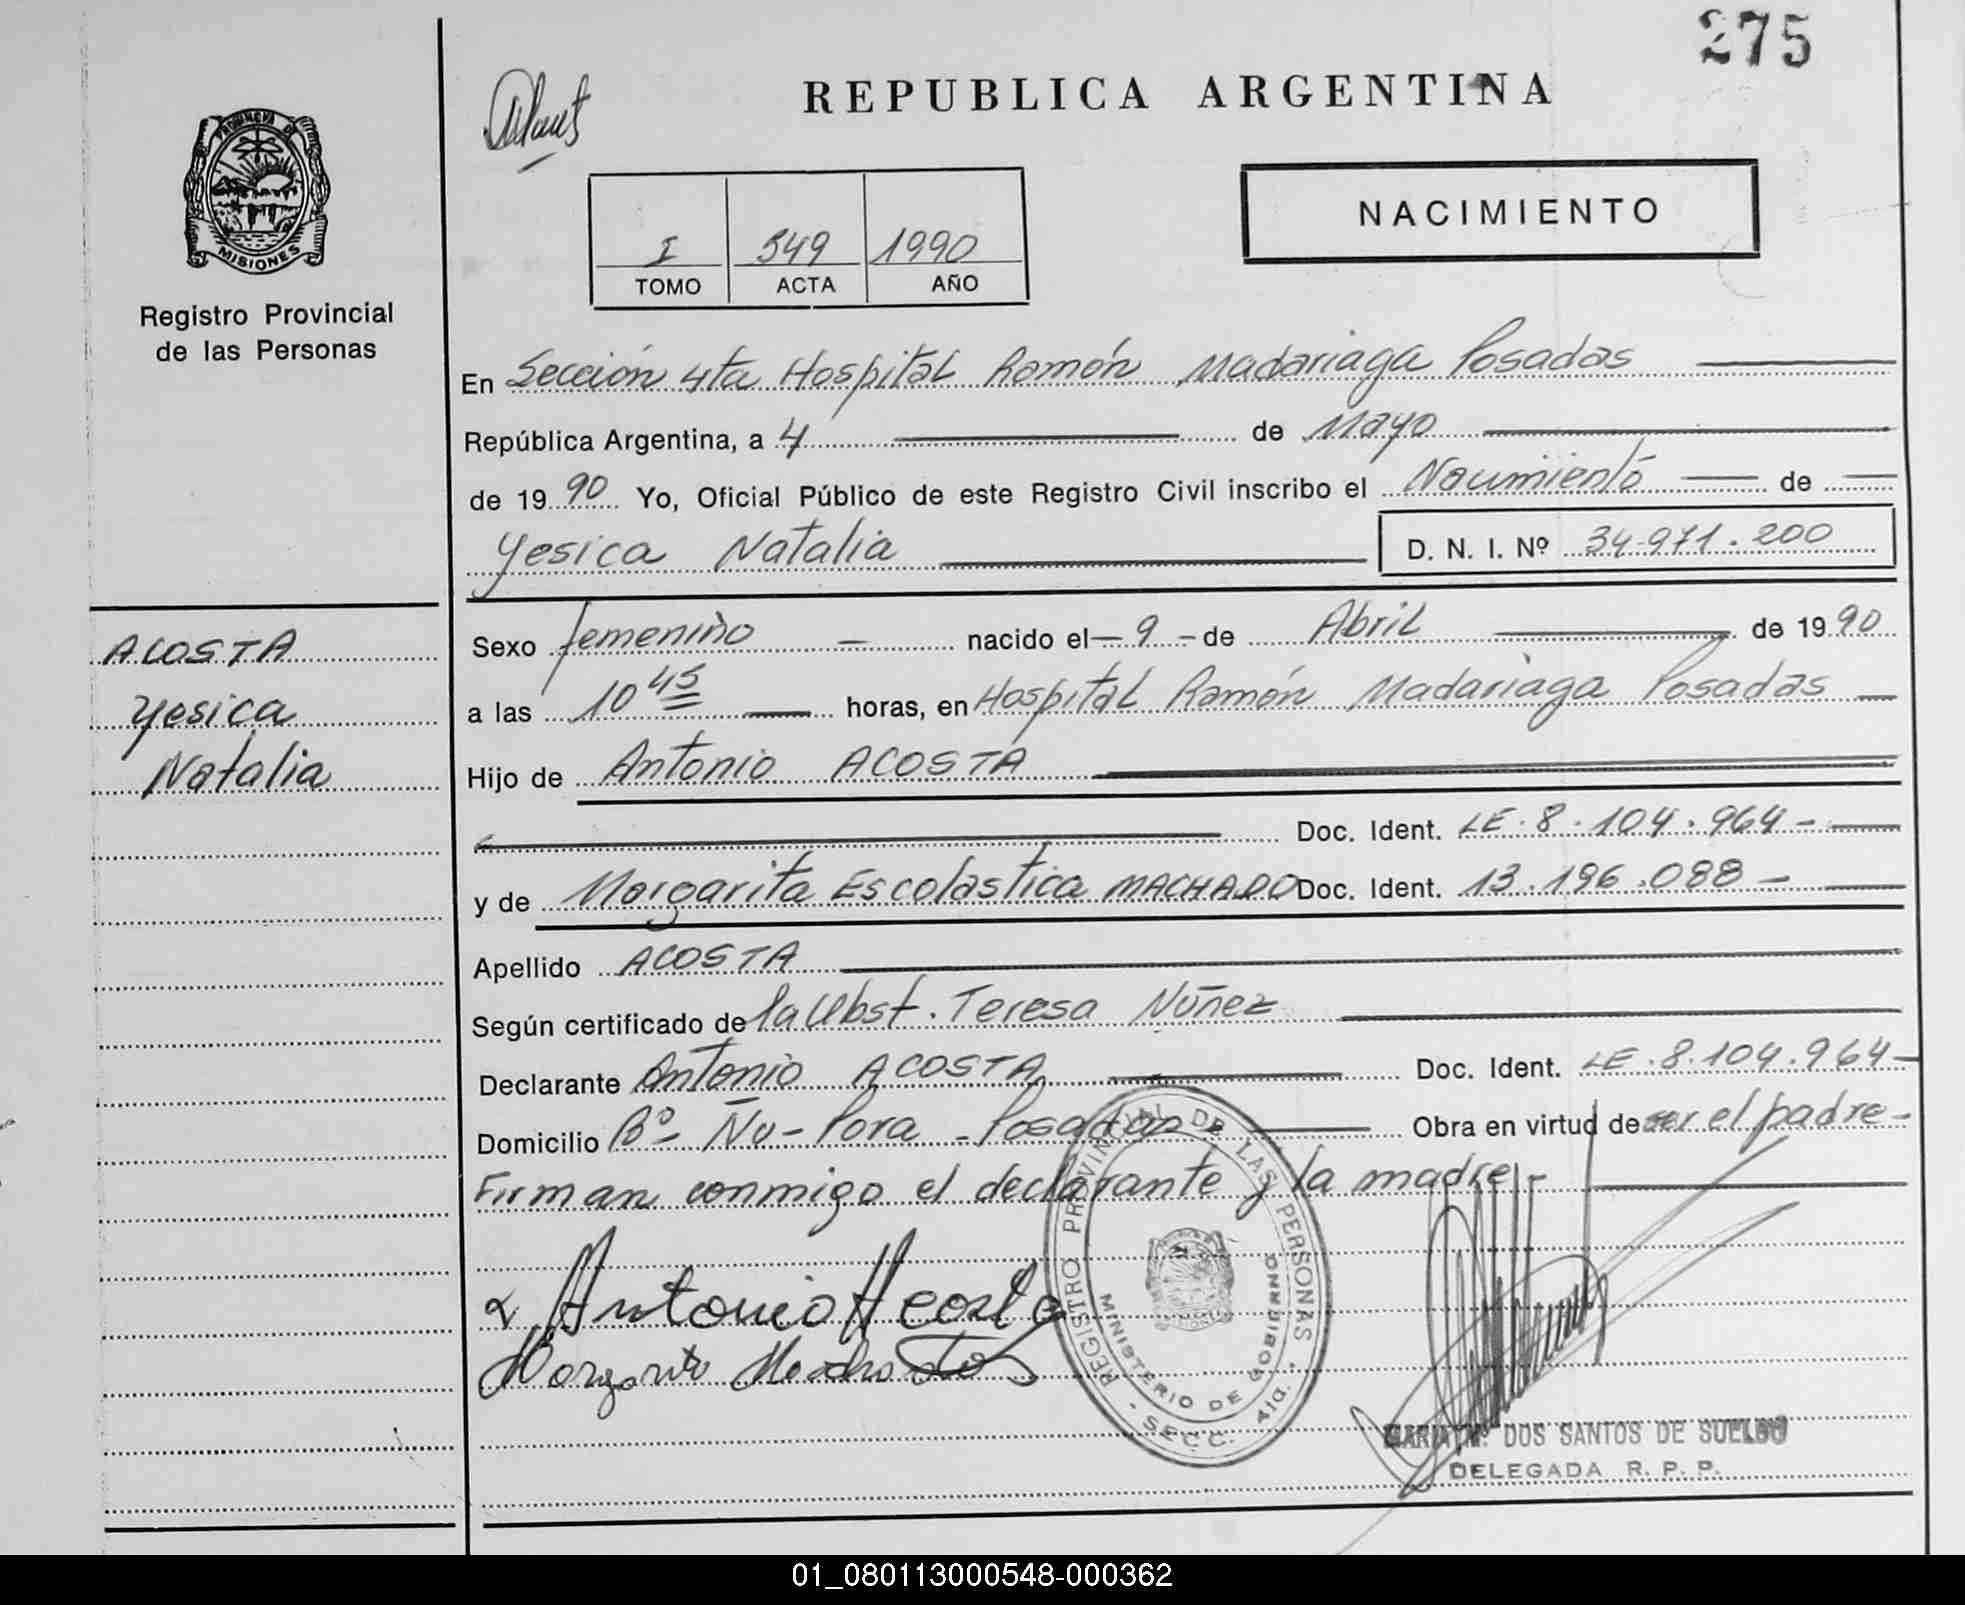 275
REPUBLICA ARGENTINA
PROVINCIA DE
MISIONES
Registro Provincial
de las Personas
NACIMIENTO
I 549 1990
TOMO ACTA AÑO
En Sección 4ta Hospital Ramón Madariaga Posadas
República Argentina, a 4 de Mayo
de 1990 Yo, Oficial Público de este Registro Civil inscribo el Nacimiento de
Yesica Natalia D. N. I. Nº 34.971.200
ACOSTA
Yesica
Natalia
Sexo femenino nacido el 9 de Abril de 1990
a las 10 45 horas, en Hospital Ramón Madariaga Posadas
Hijo de Antonio ACOSTA
Doc. Ident. LE. 8.104.964-
y de Margarita Escolastica MACHADO Doc. Ident. 13.196.088-
Apellido ACOSTA
Según certificado de la Obst. Teresa Núñez
Declarante Antonio ACOSTA Doc. Ident. LE.8.104.964-
Domicilio Bº- Ñu-Pora - Posadas Obra en virtud de ser el padre-
Firman conmigo el declarante y la madre-
Antonio Acosta
Margarita Machado
REGISTRO PROVINCIAL DE LAS PERSONAS
MINISTERIO DE GOBIERNO
- SECC. 4ta. -
DOS SANTOS DE
DELEGADA R. P. P.
01_080113000548-000362